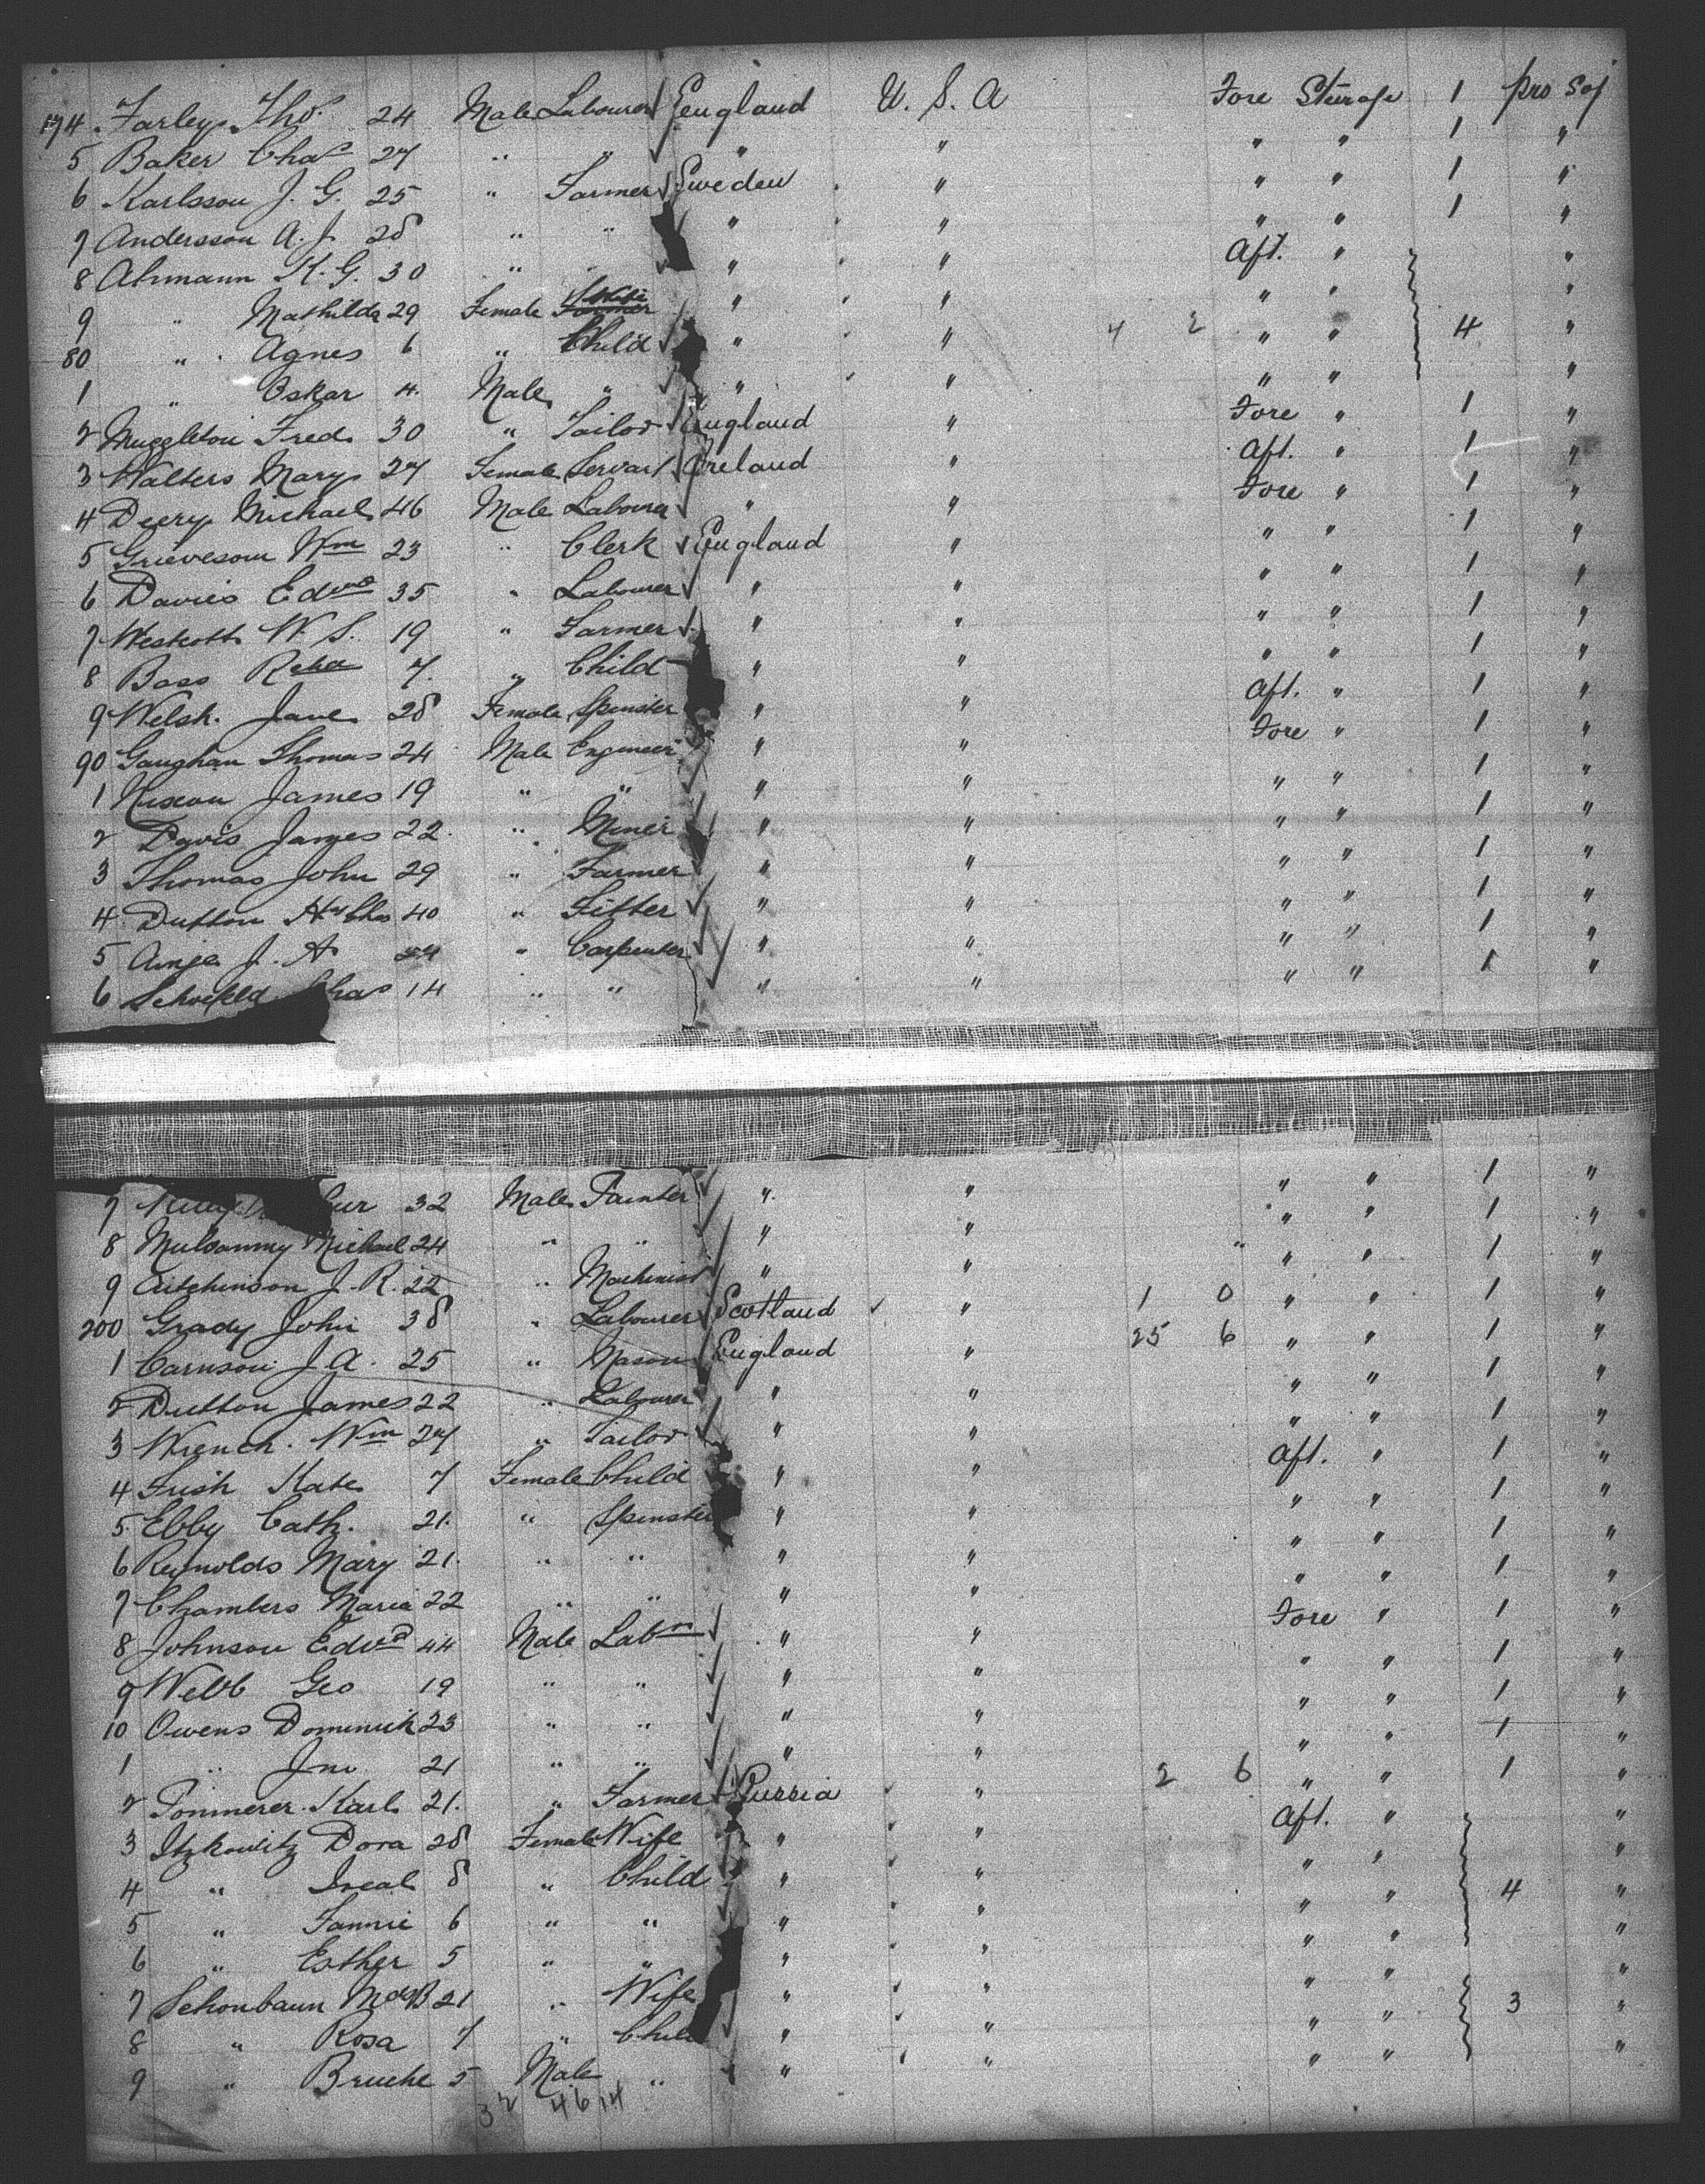 174 Farley Tho.s 24 Male Labourer England U. S. A Fore Steerage 1 pro Soj
5 Baker Chas 27 " " " " " " 1 "
6 Karlsson J. G. 25 " Farmer Sweden " " " 1 "
7 Andersson A. J. 28 " " " " " " 1 "
8 Ahmann K. G. 30 " " " Aft. " "
9 " Mathilda 29 Female Wife " " " " "
80 " Agnes 6 " Child " " 4 2 " " 4 "
1 " Oskar 4 Male " " " " " "
2 Muggleton Fred 30 " Tailor England " Fore " 1 "
3 Walters Mary 27 Female Servant Ireland " Aft. " 1 "
4 Deery Michael 46 Male Labourer " " Fore " 1 "
5 Grieveson Wm 23 " Clerk England " " " 1 "
6 Davies Edwd 35 " Labourer " " " " 1 "
7 Westcott W. S. 19 " Farmer " " " " 1 "
8 Bass 7 " Child " " " " 1 "
9 Welsh Jane 28 Female Spinster " " Aft. " 1 "
90 Gaughan Thomas 24 Male Engineer " " Fore " 1 "
1 James 19 " " " " " " 1 "
2 Davis James 22 " Miner " " " " 1 "
3 Thomas John 29 " Farmer " " " " 1 "
4 Dutton Hy Chas 40 " Fitter " " " " 1 "
5 J. A " Carpenter " " " " 1 "
6 Chas 14 " " " " " " 1 "
7 32 Male Painter " " " " 1 "
8 Michael 24 " " " " " " 1 "
9 Aitchinson J. R. 22 " Machinist " " " " 1 "
200 Grady John 38 " Labourer Scotland " 1 0 " " 1 "
1 Carnson J. A. 25 " Mason England " 25 6 " " 1 "
2 Dutton James 22 " Labourer " " " " 1 "
3 Wrench Wm 27 " Tailor " " " " 1 "
4 Kate 7 Female Child " " Aft. " 1 "
5 Ebby Cath. 21 " Spinster " " " " 1 "
6 Reynolds Mary 21 " " " " " " 1 "
7 Chambers Maria 22 " " " " " " 1 "
8 Johnson Edwd 44 Male Labr " " Fore " 1 "
9 Webb Geo 19 " " " " " " 1 "
10 Owens Dominick 23 " " " " " " 1 "
1 " Jno 21 " " " " " " 1 "
2 Pommerer Karl 21 " Farmer Russia " 2 6 " " 1 "
3 Itzkowitz Dora 28 Female Wife " " Aft. " "
4 " Isreal 8 " Child " " " " "
5 " Fannie 6 " " " " " " 4 "
6 " Esther 5 " " " " " " "
7 Schonbaun 21 " Wife " " " " "
8 " Rosa 7 " Child " " " " 3 "
9 " Bruche 5 Male " " " " " "
32 46 14